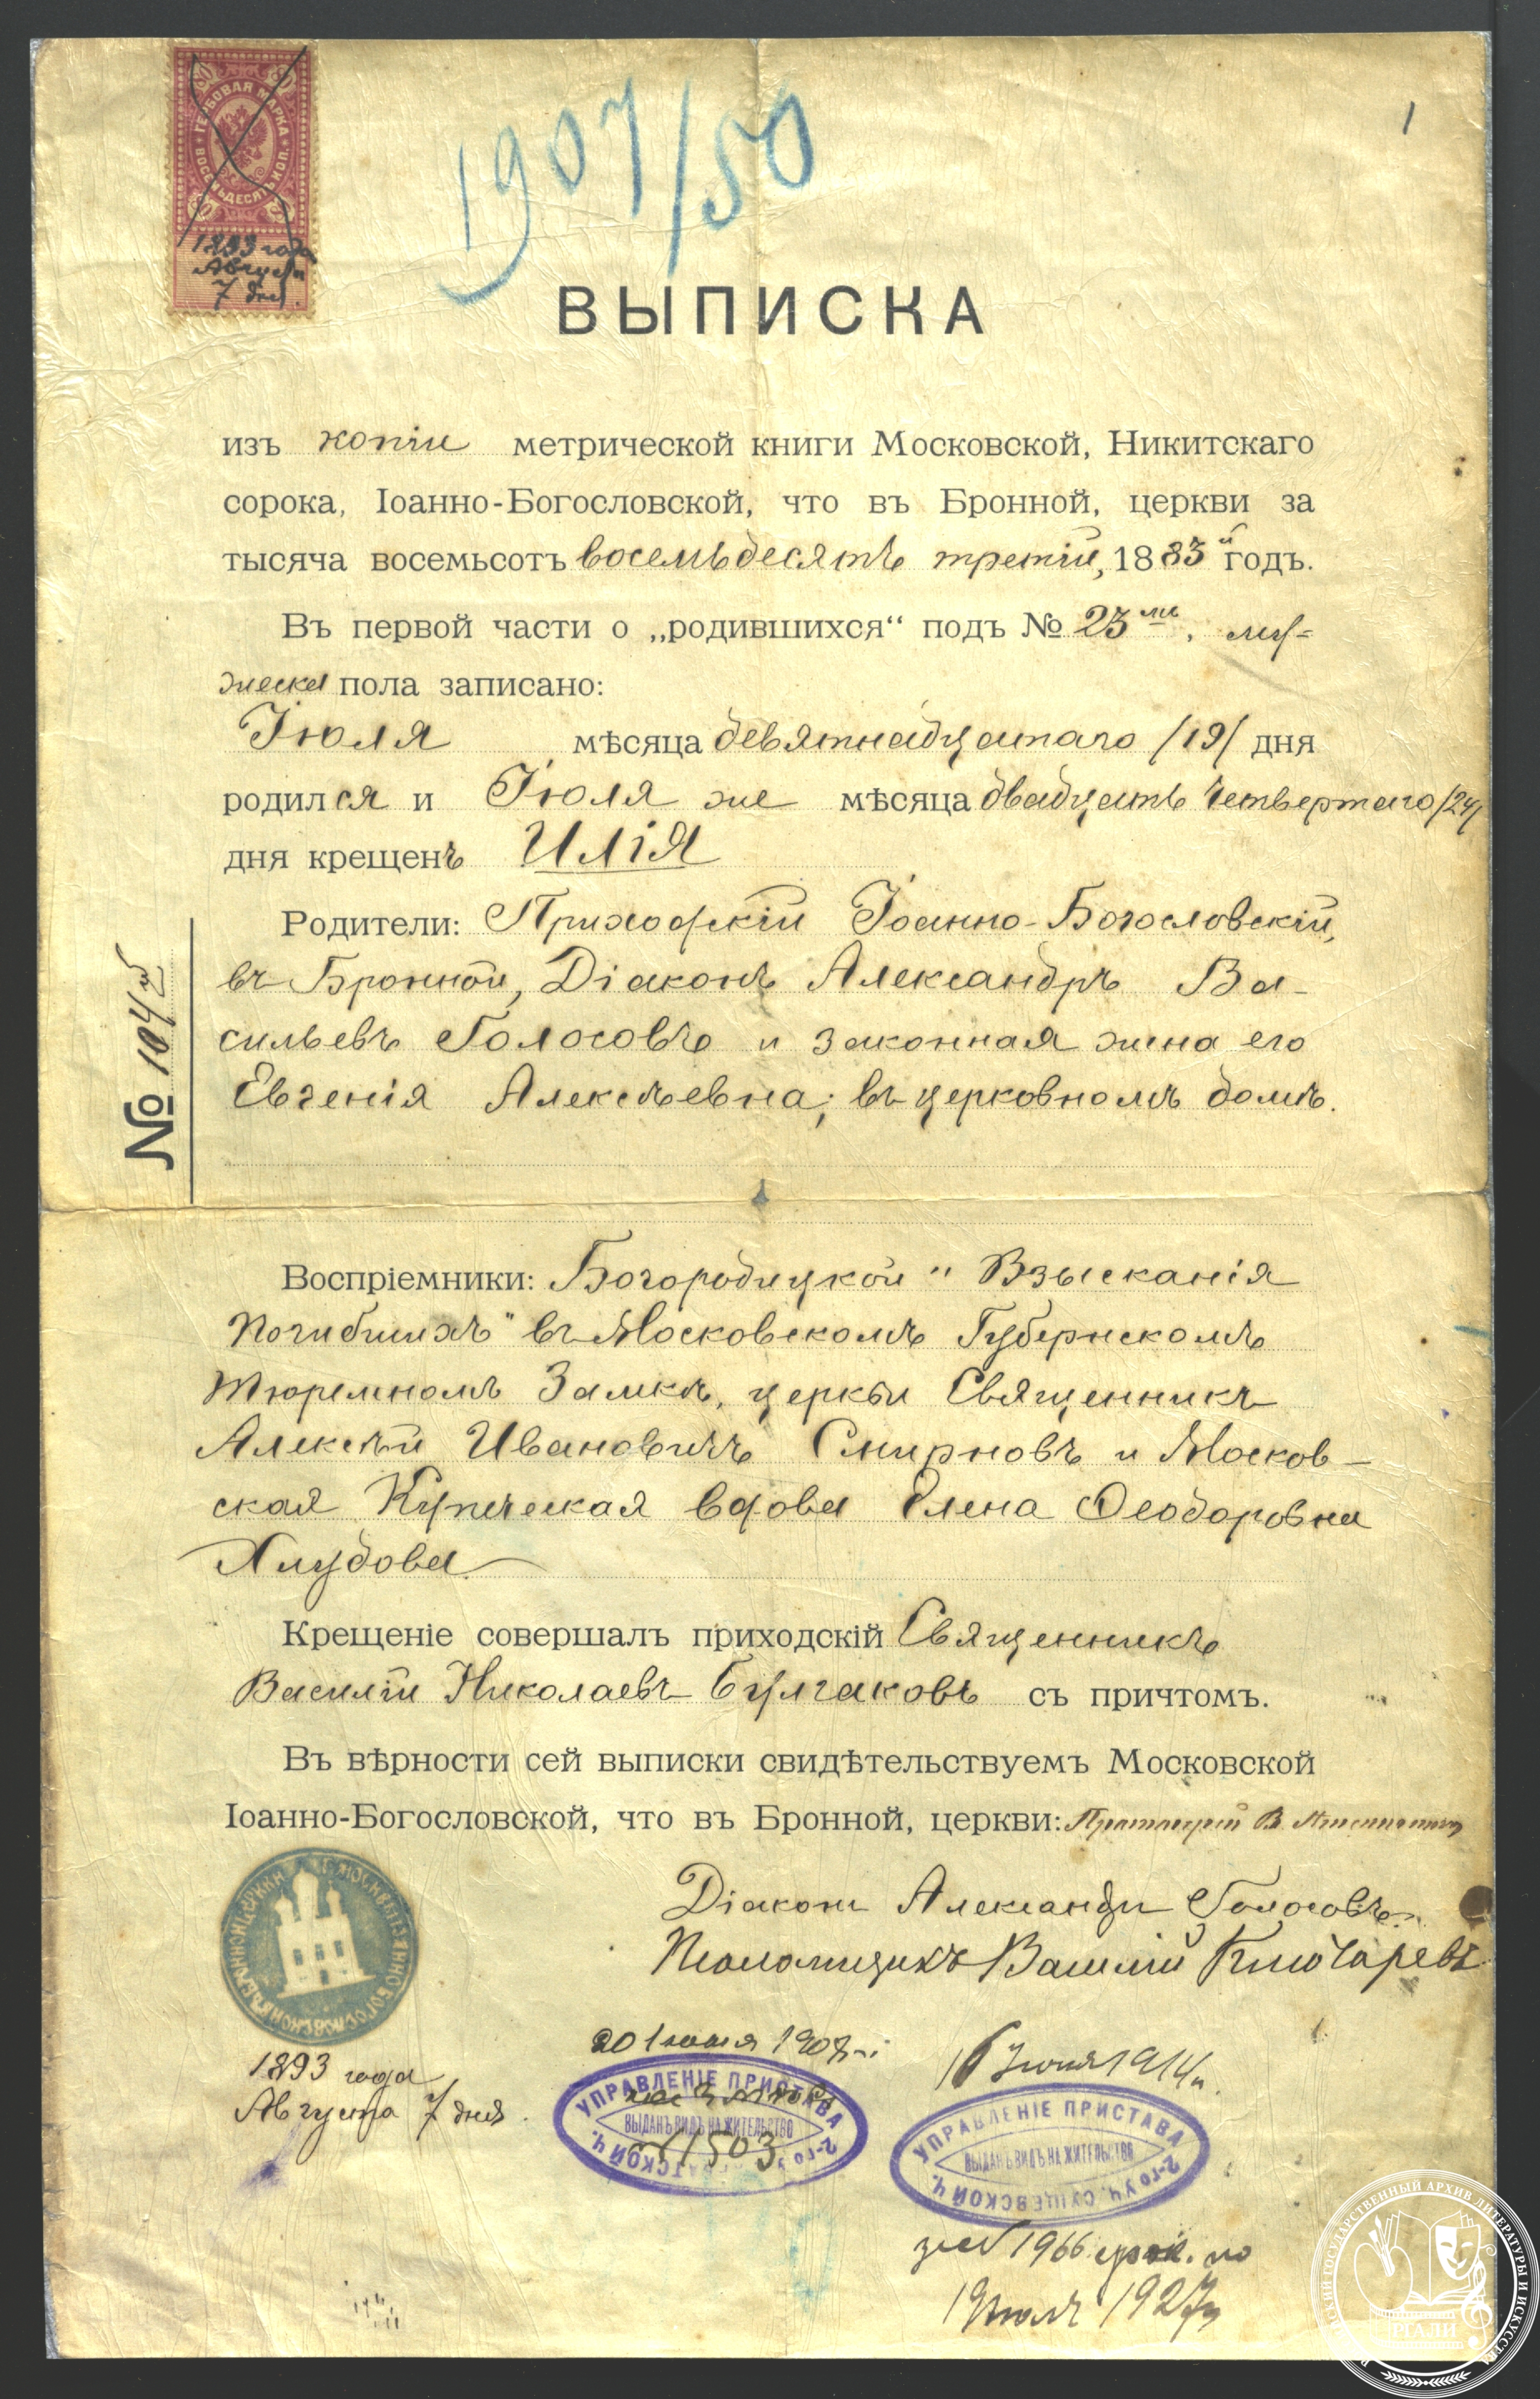 ГЕРБОВАЯ МАРКА
ВОСЕМЬДЕСЯТЪ КОП.
80 80
1893 года
Августа
7 дня.
1907/50
1
ВЫПИСКА
изъ копіи метрической книги Московской, Никитскаго
сорока, Іоанно-Богословской, что въ Бронной, церкви за
тысяча восемьсотъ восемьдесятъ третій, 1883й годъ.
Въ первой части о „родившихся“ подъ № 23мъ, му-
жеска пола записано:
Іюля мѣсяца девятнадцатаго /19/ дня
родился и Іюля же мѣсяца двадцать четвертаго /24/
дня крещенъ ИЛІЯ
Родители: Приходскій Іоанно-Богословскій,
въ Бронной, Діаконъ Александръ Ва-
сильевъ Голосовъ и законная жена его
Евгенія Алексѣевна; въ церковномъ домѣ.
№ 104
Воспріемники: Богородицкой „Взысканія
Погибшихъ“ въ Московскомъ Губернскомъ
Тюремномъ Замкѣ, церкви Священникъ
Алексѣй Ивановичъ Смирновъ и Москов-
ская Купеческая вдова Елена Ѳеодоровна
Хлудова
Крещеніе совершалъ приходскій Священникъ
Василій Николаевъ Булгаковъ съ причтомъ.
Въ вѣрности сей выписки свидѣтельствуемъ Московской
Іоанно-Богословской, что въ Бронной, церкви: Протоіерей В.
Діаконъ Александръ Голосовъ.
Псаломщикъ Василій Ключаревъ
1893 года
Августа 7 дня.
20 Іюля 1907 г.
УПРАВЛЕНІЕ ПРИСТАВА
ВЫДАНЪ ВИДЪ НА ЖИТЕЛЬСТВО
2-го
1503
16 Іюня 1914 г.
УПРАВЛЕНІЕ ПРИСТАВА
ВЫДАНЪ ВИДЪ НА ЖИТЕЛЬСТВО
2-го УЧ. СУЩЕВСКОЙ Ч.
1966 по
1927
РОССИЙСКИЙ ГОСУДАРСТВЕННЫЙ АРХИВ ЛИТЕРАТУРЫ И ИСКУССТВА
РГАЛИ